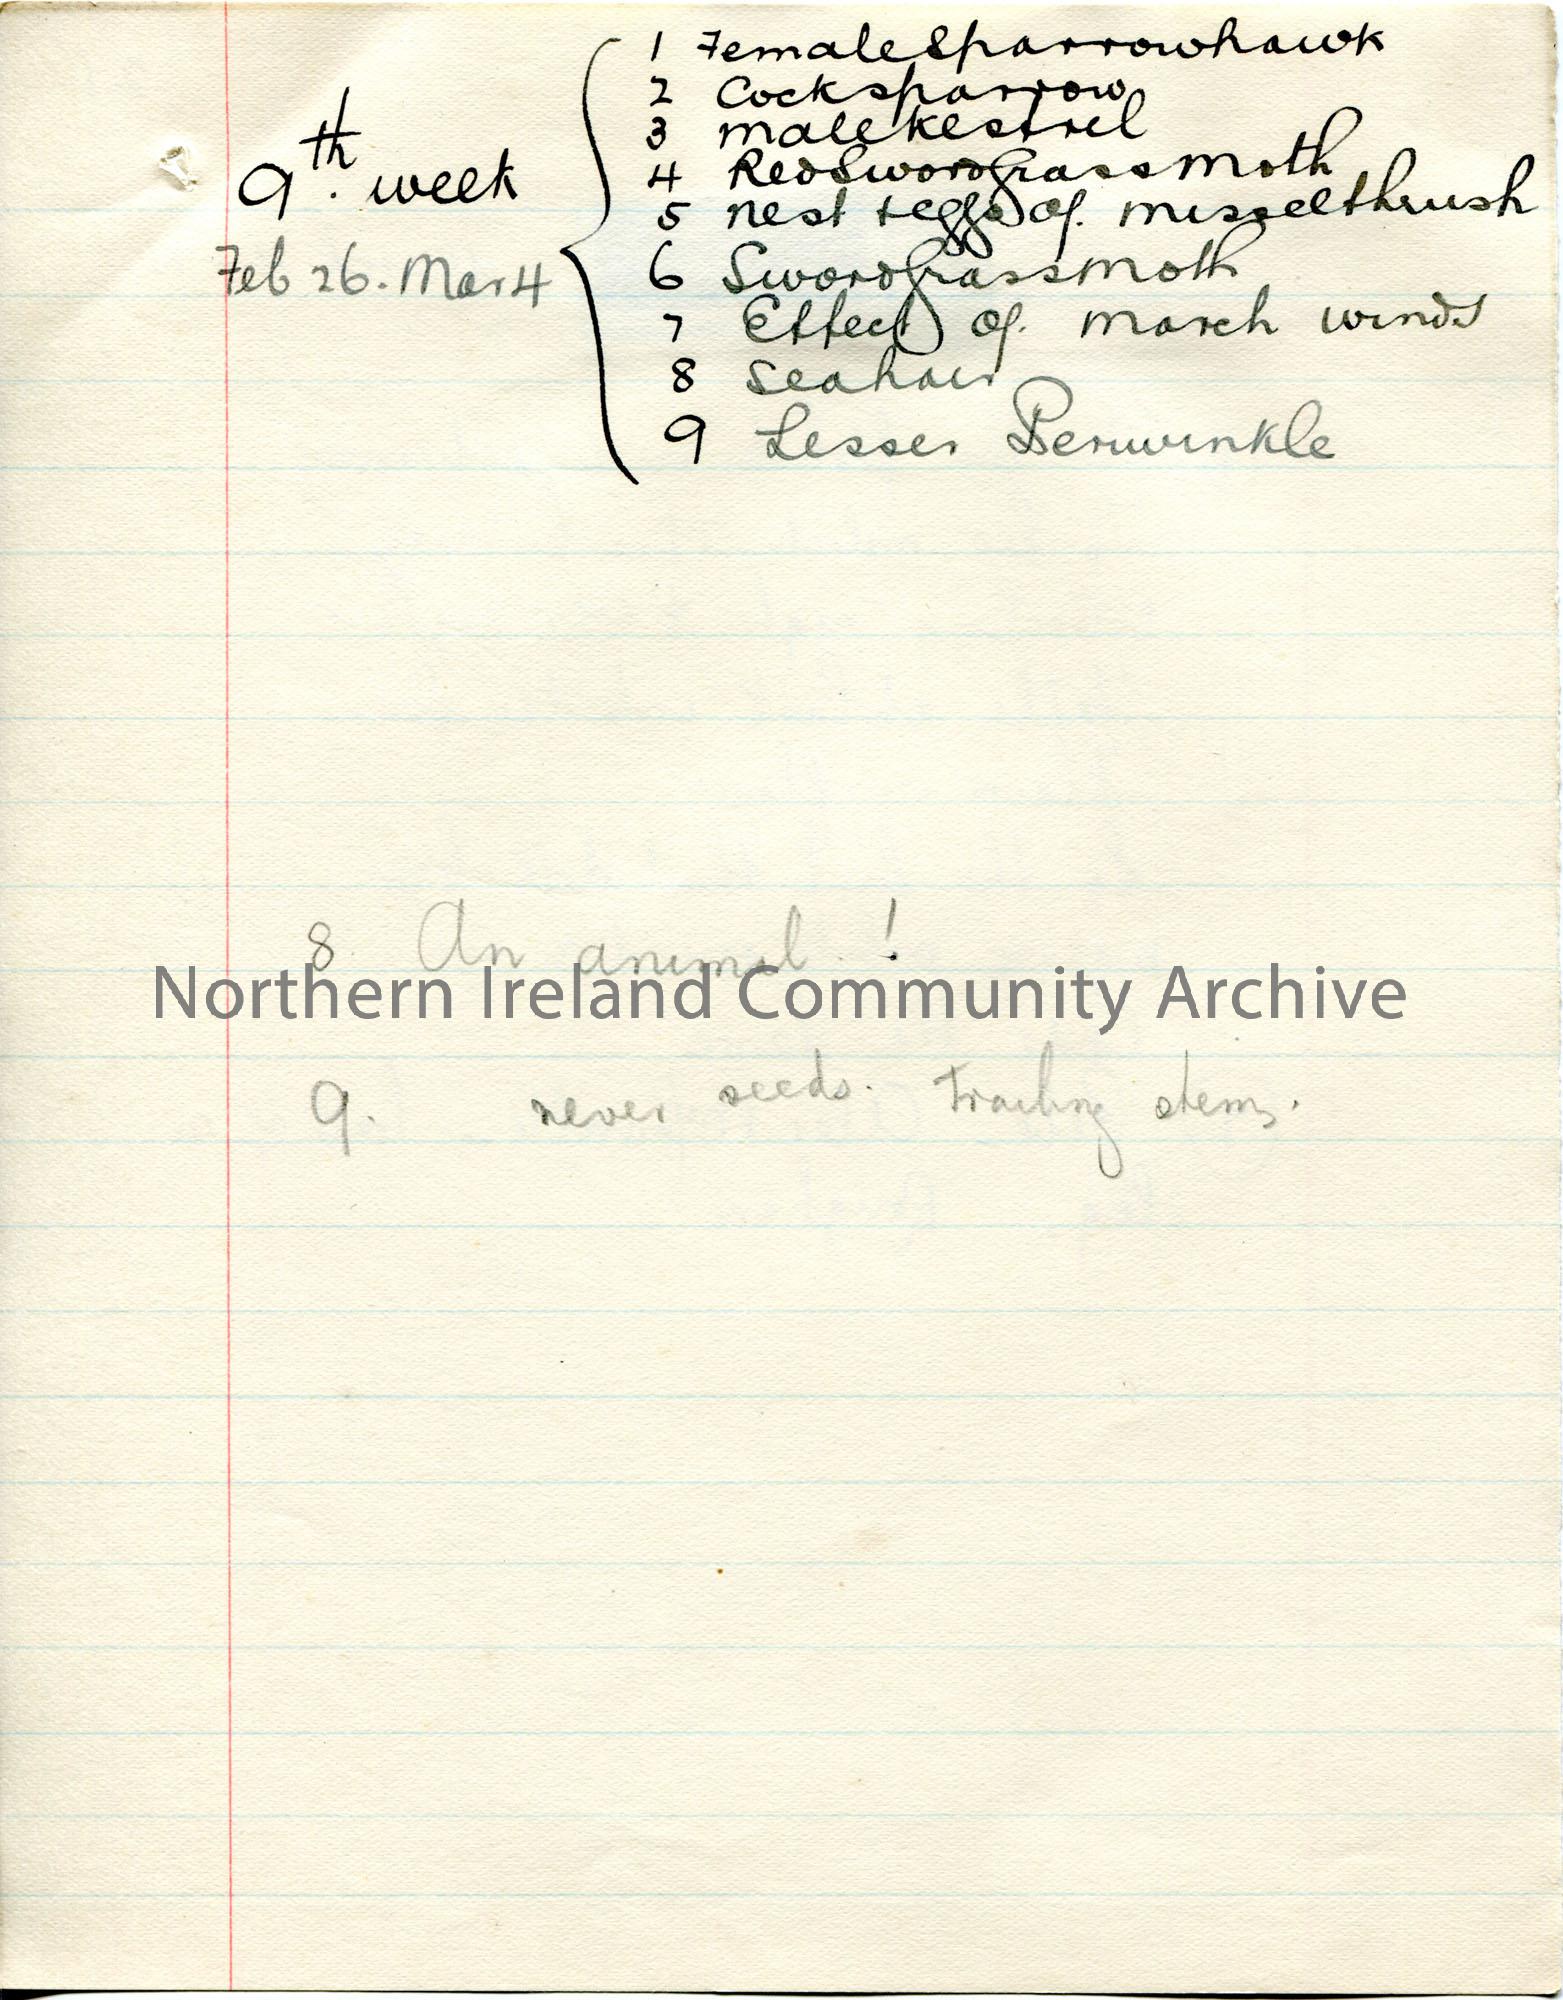 1 Female Sparrowhawk
2 Cock sparrow
3 male kestrel
9th. week
4 Red Sword Grass Moth
5 nest & eggs of misselthrush
Feb 26. Mar 4
6 Sword Grass Moth
7 Effect of march winds
8 Seahair
9 Lesser Periwinkle
8. An animal !
Northern Ireland Community Archive
9. never seeds. Trailing stems.